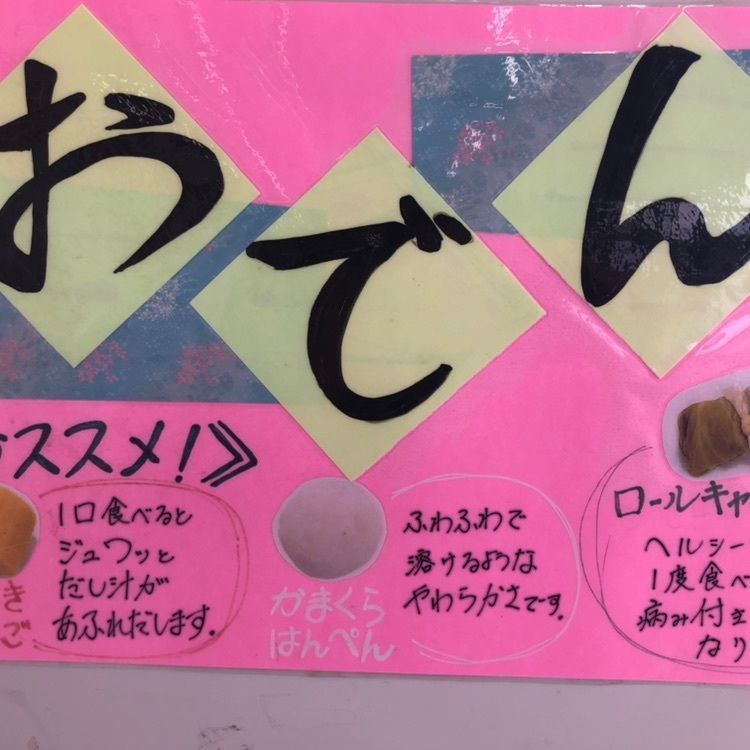 おでん
ススメ!》
き
ご
1口食べると
ジュワッと
だし汁が
あふれだします。
かまくら
はんぺん
ふわふわで
溶けるような
やわらかさです。
ロールキャ
ヘルシー
1度食べ
病み付き
なり